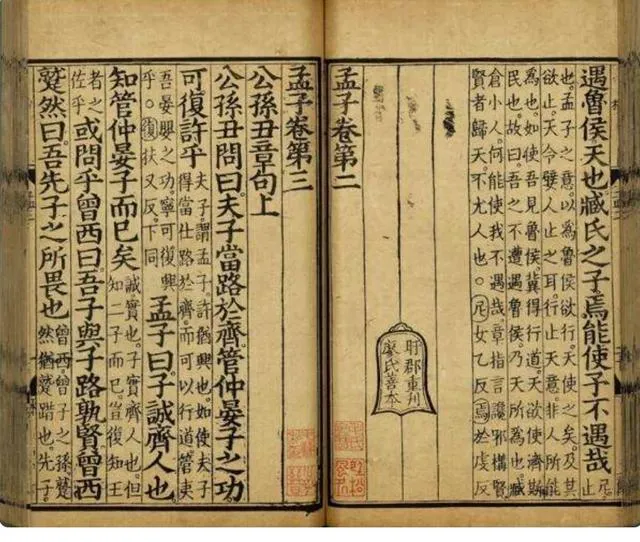 遇魯侯天也臧氏之子焉能使予不遇哉尼止
也。孟子之意以爲魯侯欲行。天使之矣。及其
欲止。天令嬖人止之耳。行止天意。非人所能
爲也。如使吾見魯侯。冀得行道。天欲使濟斯
民也。故曰。吾之不遭遇魯侯。乃天所爲也。臧
倉小人。何能使我不遇哉。章指言讒邪構賢
賢者歸天。不尤人也。尼女乙反焉於虔反
孟子卷第二
盱郡重刊
廖氏善本
孟子卷第三
公孫丑章句上
公孫丑問曰。夫子當路於齊。管仲晏子之功。
可復許乎夫子。謂孟子。許猶興也。如使夫子得當仕路於齊。而可以行道。管夷
吾晏嬰之功。寧可復興乎。復扶又反。下同孟子曰。子誠齊人也
知管仲晏子而已矣誠實也。子實齊人也。但知二子而已。豈復知王
者之佐乎或問乎曾西曰。吾子與子路孰賢曾西
蹵然曰。吾先子之所畏也曾西曾子之孫。蹵然猶蹵踖也。先子